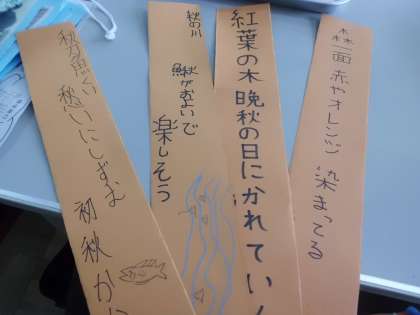 森一面 赤やオレンジ 染まってる
紅葉の木 晩秋の日にかれていく
秋の川 鰍がおよいで 楽しそう
秋刀魚くい 愁いにしずむ 初秋か